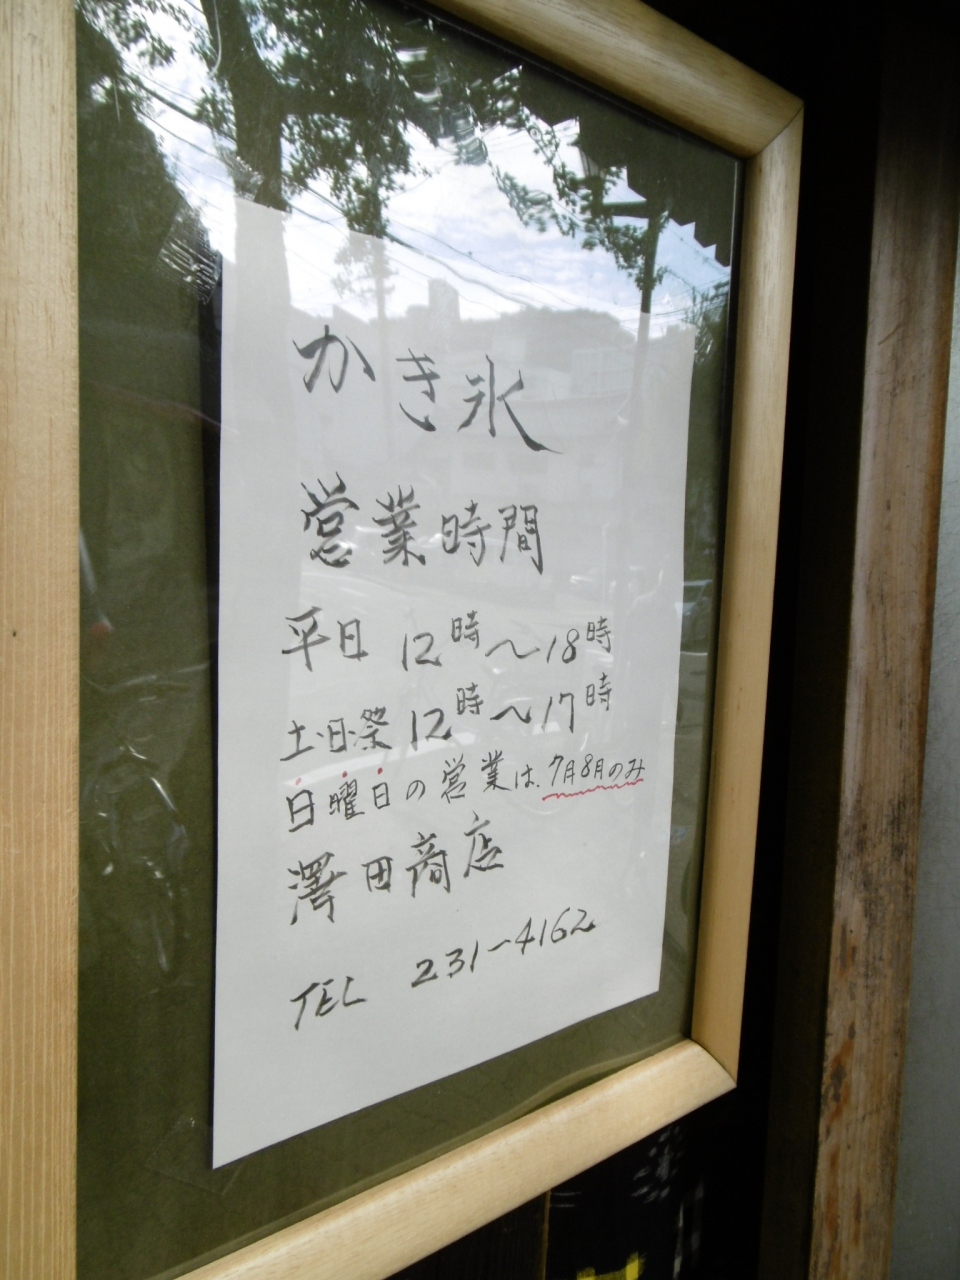 かき氷
営業時間
平日 12時～18時
土・日・祭 12時～17時
日曜日の営業は、7月8月のみ
澤田商店
TEL 231-4162